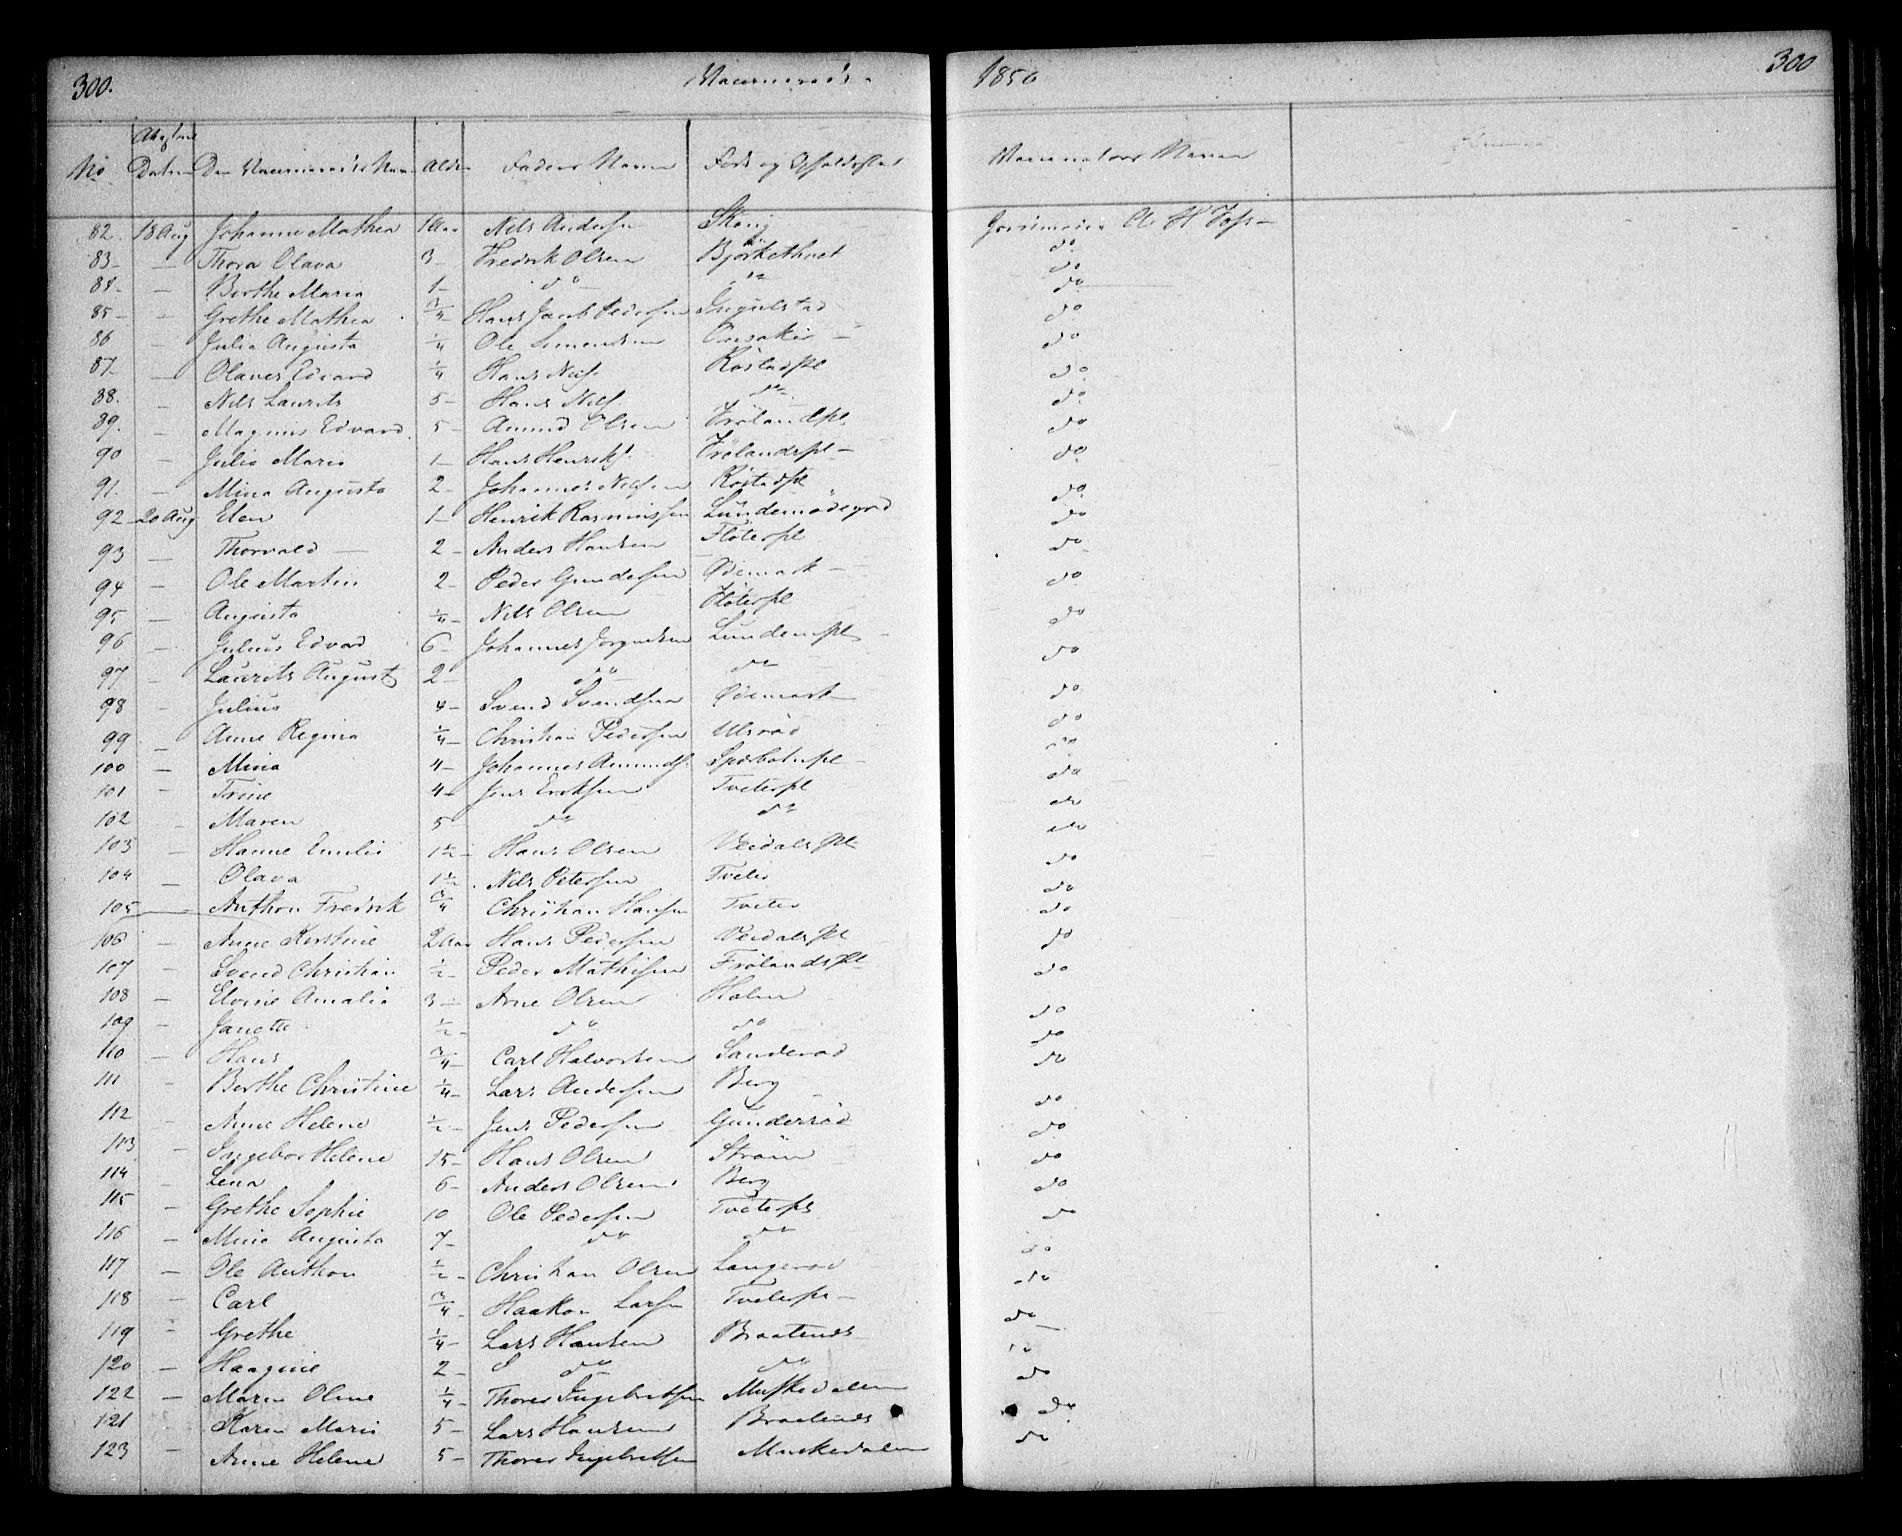 300. Vaccinerede 1850 300
No Datum Den Vaccineredes Navn Alder Faders Navn Føde og Opholdssted Vaccinateurs Navn
82. 18 Aug Johanne Mathea 1 Aar Nils Andersen Skøig A. H.
83 — Thora Olava 3 — Fredrik Olsen do
84 — Berthe Maria 1 — do do do
85 — Grethe Mathea 3/4 Hans Jacob Pedersen Ingulstad do
86 — Julie Augusta 1/4 Ole Simensen do
87 — Olaves Edvard 1/4 Hans Nils. do
88. — Nils Laurits 5 — Hans Nils. do do
89. — Magnus Edvard 5 — Amund Olsen Frölandspl. do
90 — Julie Marie 1 — Hans Henriks. Frölandspl — do
91. — Mina Augusta 2 — Johannes Nilsen do
92 — 20 Aug Elen 1 — Henrik Rasmussen do
93 — Thorvald — 2 — Anders Hansen Flöterpl do
94 — Ole Martin 2 — Peder Gundersen Ødemark — do
95 — Augusta 1/4 Nils Olsen Flöterpl do
96 — Julius Edvard 6 — Johannes Jørgensen do
97 — Laurits August 2 — do do do
98 — Julius 4 — Svend Svendsen Ødemark do
99 — Anne Regina 1/4 — Christian Pedersen Ulsröd do
100 — Mina 4 — Johannes Amunds. do
101 — Trine 4 — Jens Eriksen Tveterpl do
102 — Maren 5 do do do
103 Hanne Emilie 1 1/2 — Hans Olsen Veidalspl. do
104 — Olava 1 1/2 Nils Petersen Tveter do
105 — Anthon Fredrik 3/4 Christian Hansen Tveter do
106 — Anne Kirstine 2 Aar Hans Pedersen Veidalspl do
107 — Svend Christian 1/2 — Peder Mathisen Frölandspl do
108 — Elvine Amalie 3 — Arne Olsen Holm do
109 — Janette 1/2 — do do do
110 — Hans 3/4 — Carl Halvorsen Sanderöd do
111 — Berthe Christine 1/4 — Lars Andersen Berg do
112 — Anne Helene 1/2 — Jens Pedersen Gunderröd do
113 — Ingebor Helene 15 — Hans Olsen Ström do
114 — Lena 6 — Anders Olsen Berg do
115 — Grethe Sophie 10 Ole Pedersen Tveterpl do
116 — Mina Augusta 7 — do do do
117 — Ole Anthon 1/2 — Christian Olsen Langeröd do
118 — Carl 3/4 — Haakon Larsen Tveterpl — do
119 — Grethe 1/4 — Lars Hansen Braatends do
120 — Haagine 2 — do do do
122 — Maren Oline 1/4 — Thores Ingebretsen Muskedalen do
121 — Karen Marie 5 — Lars Hansen Braatends do
123 — Anne Helene 5 — Thores Ingebretsen Muskedalen do